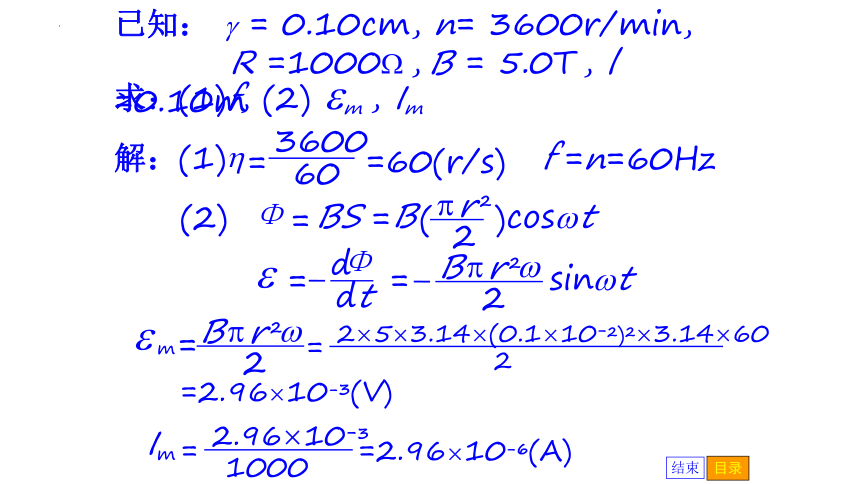 已知： γ = 0.10cm, n= 3600r/min,
R =1000Ω , B = 5.0T , l
=0.10m
求：(1)f, (2) ℰm , Im
解：(1)η=3600/60=60(r/s) f =n=60Hz
(2) Φ = BS =B(πr²/2)cosωt
ℰ =−dΦ/dt =−Bπr²ω/2 sinωt
ℰm=Bπr²ω/2= 2×5×3.14×(0.1×10-²)²×3.14×60/2
=2.96×10-³(V)
Im = 2.96×10-³/1000=2.96×10-⁶(A)
结束 目录